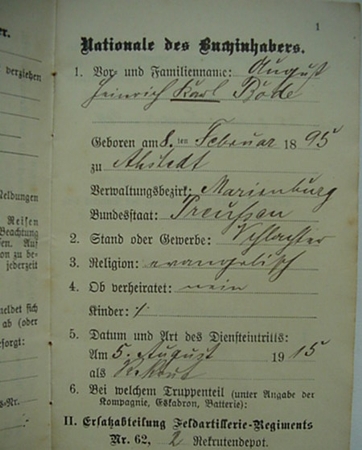 er.
1
Nationale des Buchinhabers.
verziehen
1. Vor- und Familienname: August
Heinrich Karl Bode
Geboren am 8. ten Februar 1895
zu Ahstedt
Verwaltungsbezirk: Marienburg
Bundesstaat: Preussen
eldungen
2. Stand oder Gewerbe: Schlachter
Reisen
Beachtung
en. Auf
3. Religion: evangelisch
on zu be-
jederzeit
4. Ob verheiratet: nein
Kinder: /
meldet sich
ab (oder
5. Datum und Art des Diensteintritts:
sorgt:
Am 5. August 1915
als Rekrut
6. Bei welchem Truppenteil (unter Angabe der
Kompagnie, Eskadron, Batterie):
s-Nr.
II. Ersatzabteilung Feldartillerie-Regiments
Nr. 62, 2 Rekrutendepot.